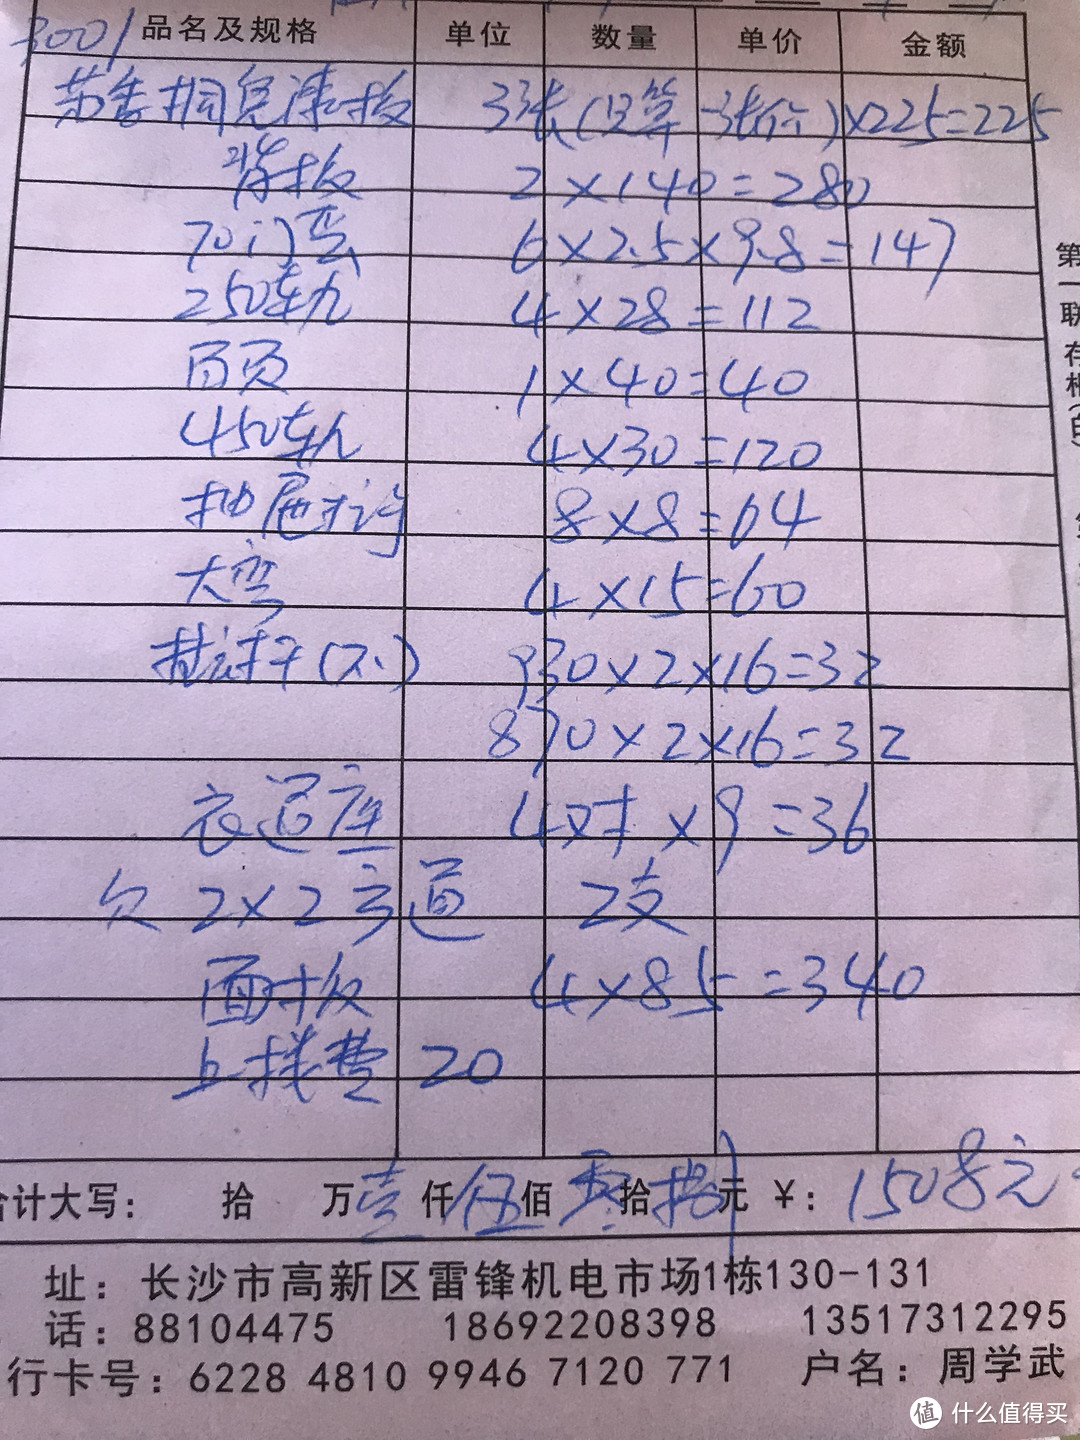 3001 品名及规格 单位 数量 单价 金额
芳香桐免漆板 3张(只算一张价)×225=225
背板 2×140=280
70门弯 6×2.5×9.8=147
250轨 4×28=112
百页 1×40=40
450轨 4×30=120
抽屉 8×8=64
大弯 4×15=60
930×2×16=32
870×2×16=32
衣通座 4对×9=36
欠2×2方通 2支
面板 4×85=340
上楼费 20
合计大写: 拾 万壹仟伍佰零拾捌元 ¥: 1508元
址: 长沙市高新区雷锋机电市场1栋130-131
话: 88104475 18692208398 13517312295
行卡号: 6228 4810 9946 7120 771 户名: 周学武
第一联 存根(白)
值 什么值得买